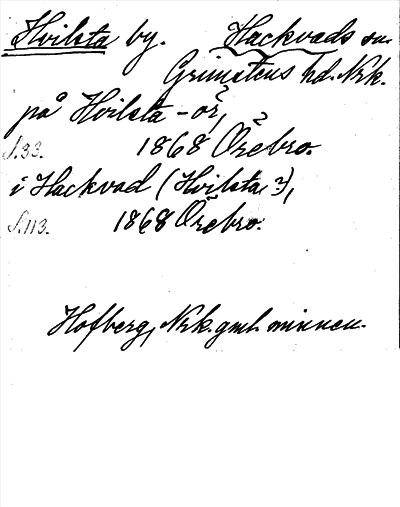 Hvilsta by. Hackvads sn.
Grimstens hd. Nrk.
på Hvilsta - ör,
S. 33. 1868 Örebro.
i Hackvad (Hvilsta?),
S. 113. 1868 Örebro.
Hofberg, Nrk. gml. minnen.